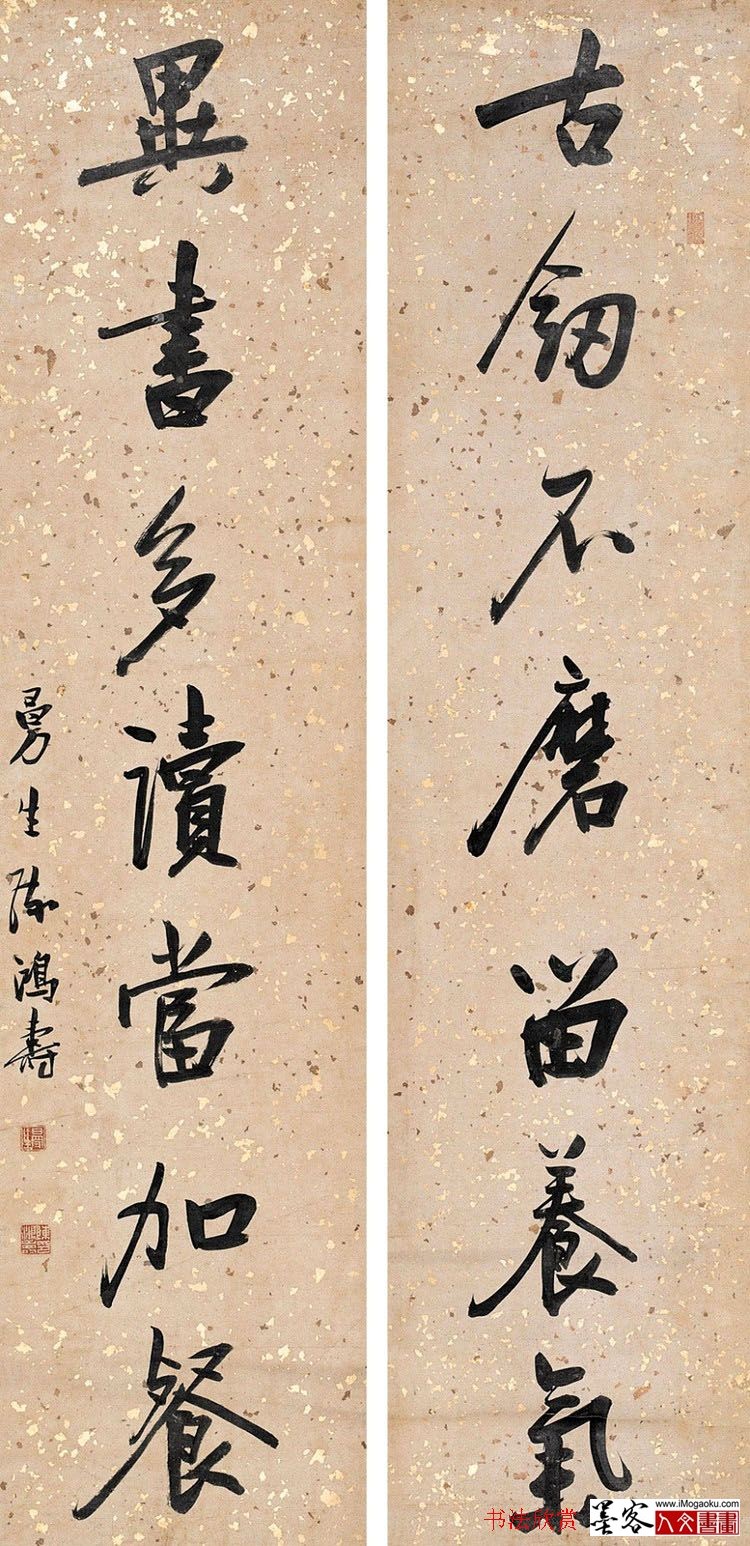 古釼不磨留養氣
異書多讀當加餐
曼生陳鴻壽
书法欣赏
墨客
www.iMogaoku.com
人文書畫